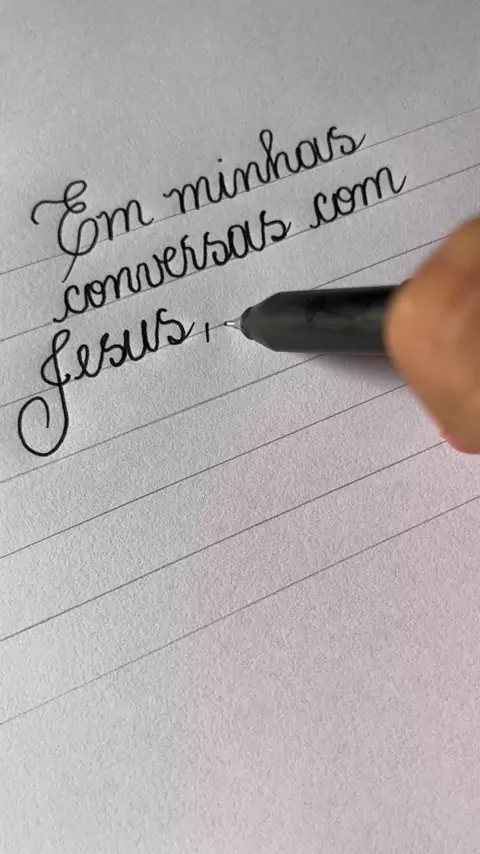 Em minhas
conversas com
Jesus,